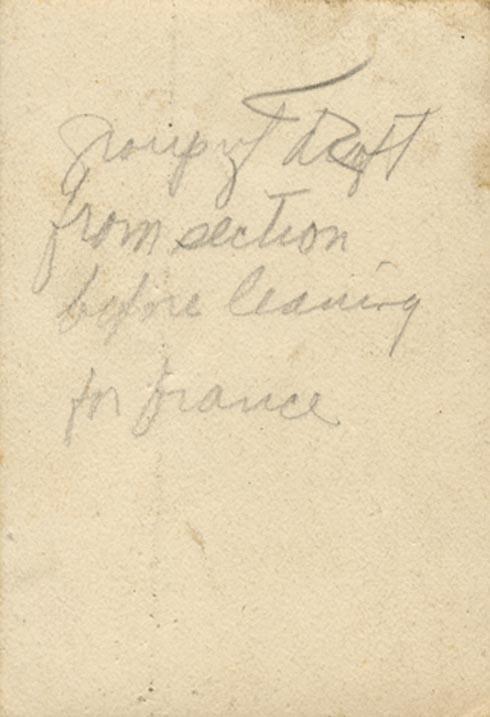 Group of Draft
from section
before leaving
for France